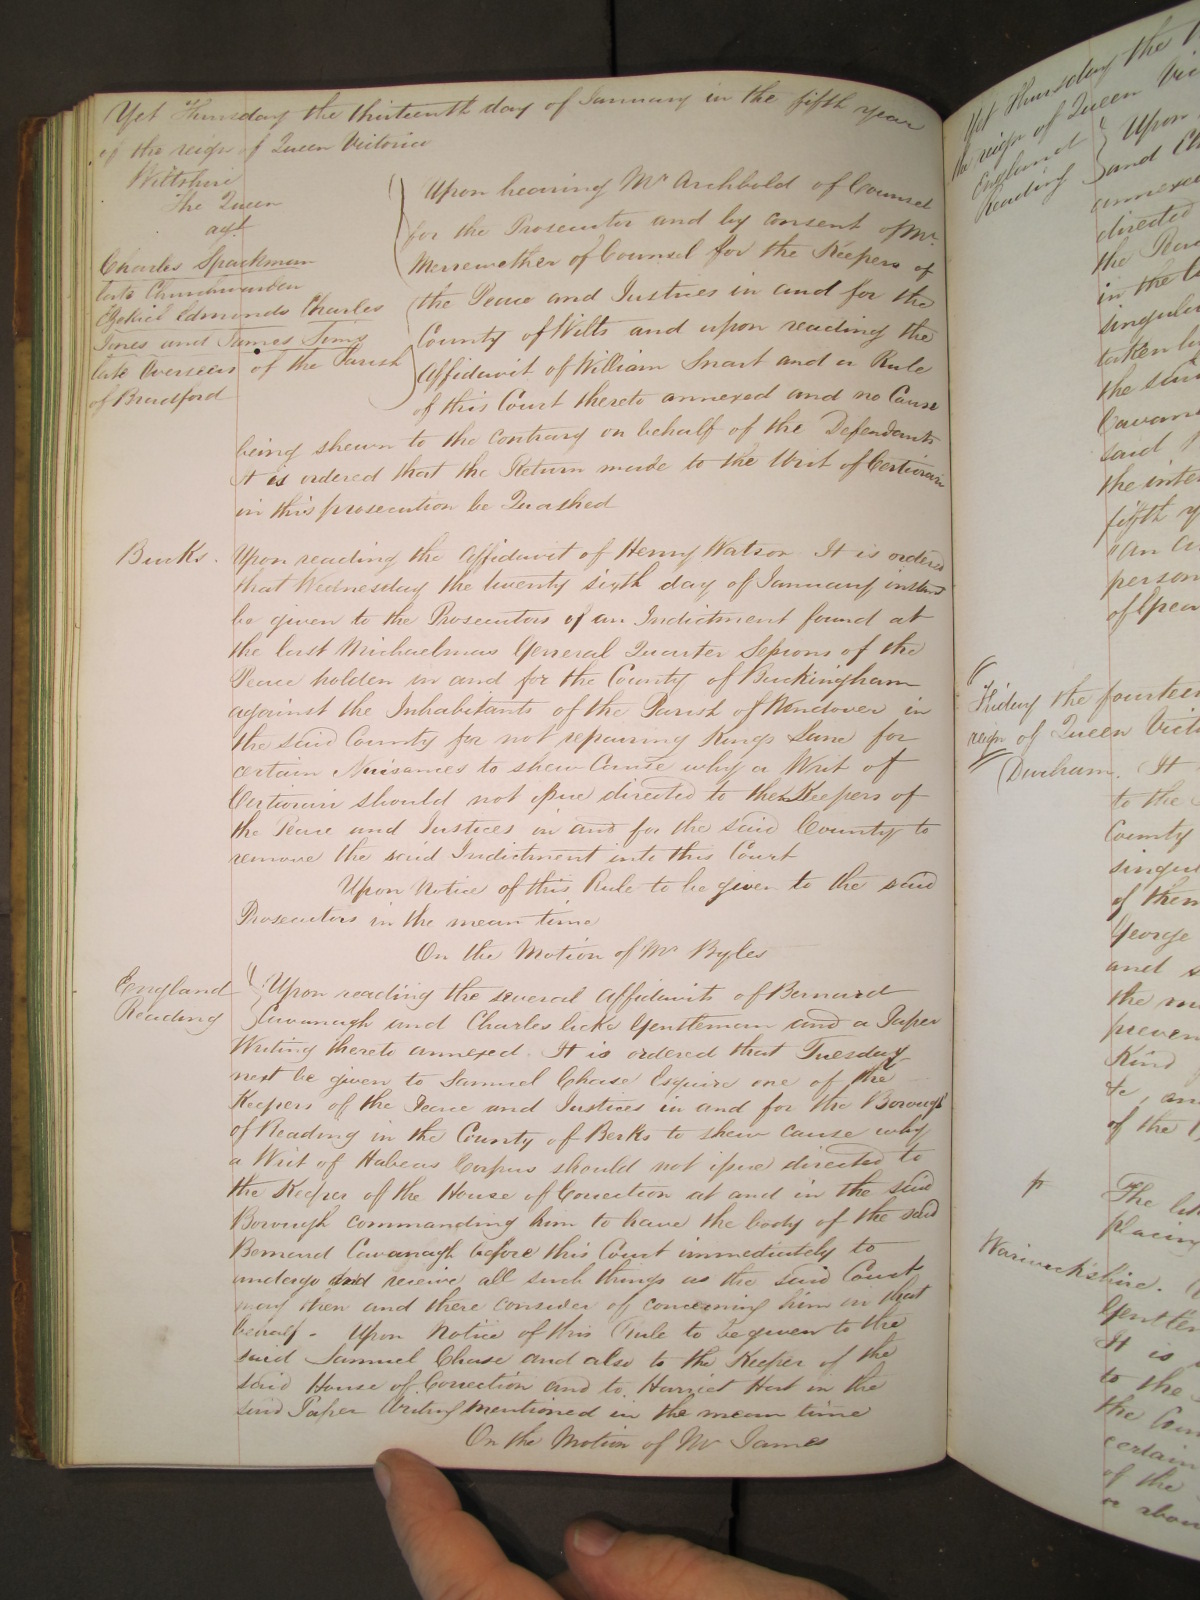 Yet Thursday the thirteenth day of January in the fifth year
of the reign of Queen Victoria
Wiltshire
The Queen
agt
Charles Spackman
late Churchwarden
Ezekiel Edmonds Charles
Jones and James Sims
late Overseers of the Parish
of Bradford
Upon hearing Mr Archbold of Counsel
for the Prosecutor and by consent of Mr.
Merewether of Counsel for the Keepers of
the Peace and Justices in and for the
County of Wilts and upon reading the
Affidavit of William Smart and a Rule
of this Court thereto annexed and no Cause
being shewn to the contrary on behalf of the Defendants
It is ordered that the Return made to the Writ of Certiorari
in this prosecution be Quashed
Bucks. Upon reading the Affidavit of Henry Watson It is ordered
that Wednesday the twenty sixth day of January instant
be given to the Prosecutors of an Indictment found at
the last Michaelmas General Quarter Sessions of the
Peace holden in and for the County of Buckingham
against the Inhabitants of the Parish of Wendover in
the said County for not repairing Kings Lane for
certain Nuisances to shew Cause why a Writ of
Certiorari should not issue directed to the Keepers of
the Peace and Justices in and for the said County to
remove the said Indictment into this Court
Upon Notice of this Rule to be given to the said
Prosecutors in the mean time
On the Motion of Mr Byles
England
Reading
Upon reading the several Affidavits of Bernard
Cavanagh and Charles Gentleman and a Paper
Writing thereto annexed. It is ordered that Tuesday
next be given to Samuel Chase Esquire one of the
Keepers of the Peace and Justices in and for the Borough
of Reading in the County of Berks to shew cause why
a Writ of Habeas Corpus should not issue directed to
the Keeper of the House of Correction at and in the said
Borough commanding him to have the body of the said
Bernard Cavanagh before this Court immediately to
undergo and receive all such things as the said Court
may then and there consider of concerning him in that
behalf. Upon Notice of this Rule to be given to the
said Samuel Chase and also to the Keeper of the
said House of Correction and to Harriet Hart in the
said Paper Writing mentioned in the mean time
On the Motion of Mr James
Yet Thursday the
the reign of Queen
England
Reading
Upon
and
annexed
directed
the
in the
singular
taken
the said
Cavan
said
the inter
fifth y
"An
person
of
Friday the fourteen
reign of Queen Vict
Durham. It
to the
County
singul
of them
George
and s
the
preven
Kind
&c, an
of the
The
placing
Warwickshire.
Gentlem
It is
to the
the Coun
certain
of the
or abou